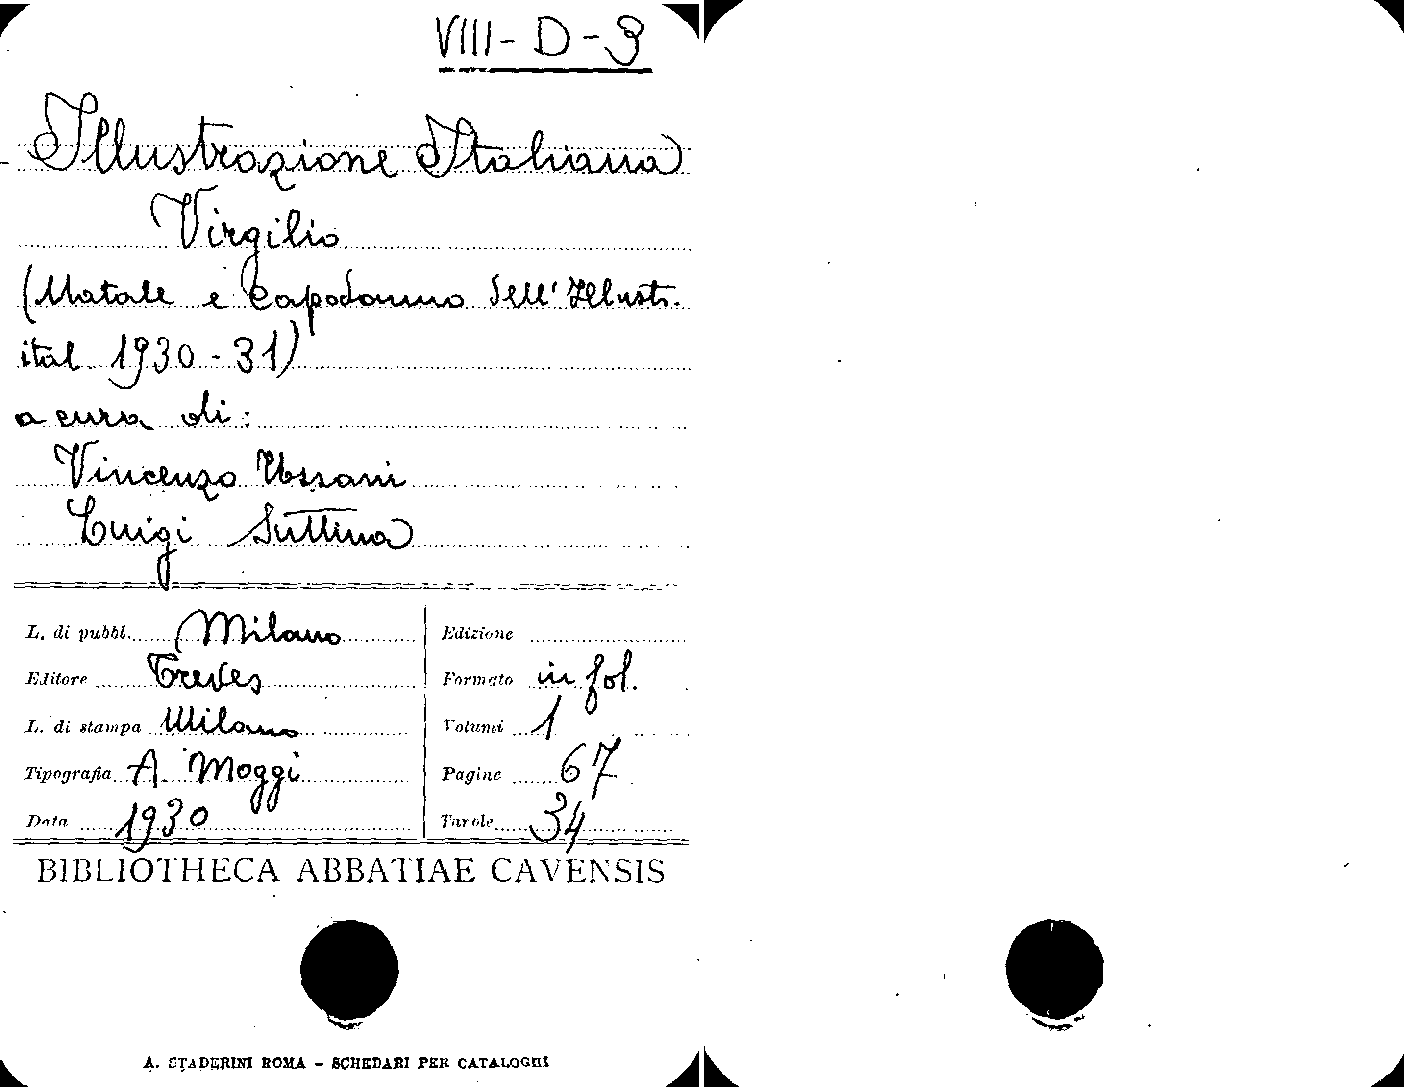 VIII - D - 3
Illustrazione Italiana
Virgilio
(Natale e Capodanno dell'Illustr.
ital. 1930-31)
a cura di:
Vincenzo Ussani
Luigi Suttina
L. di pubbl. Milano
Editore Treves
L. di stampa Milano
Tipografia A. Moggi
Data 1930
Edizione
Formato in fol.
Volumi 1
Pagine 67
Tavole 34
BIBLIOTHECA ABBATIAE CAVENSIS
A. STADERINI ROMA - SCHEDARI PER CATALOGHI